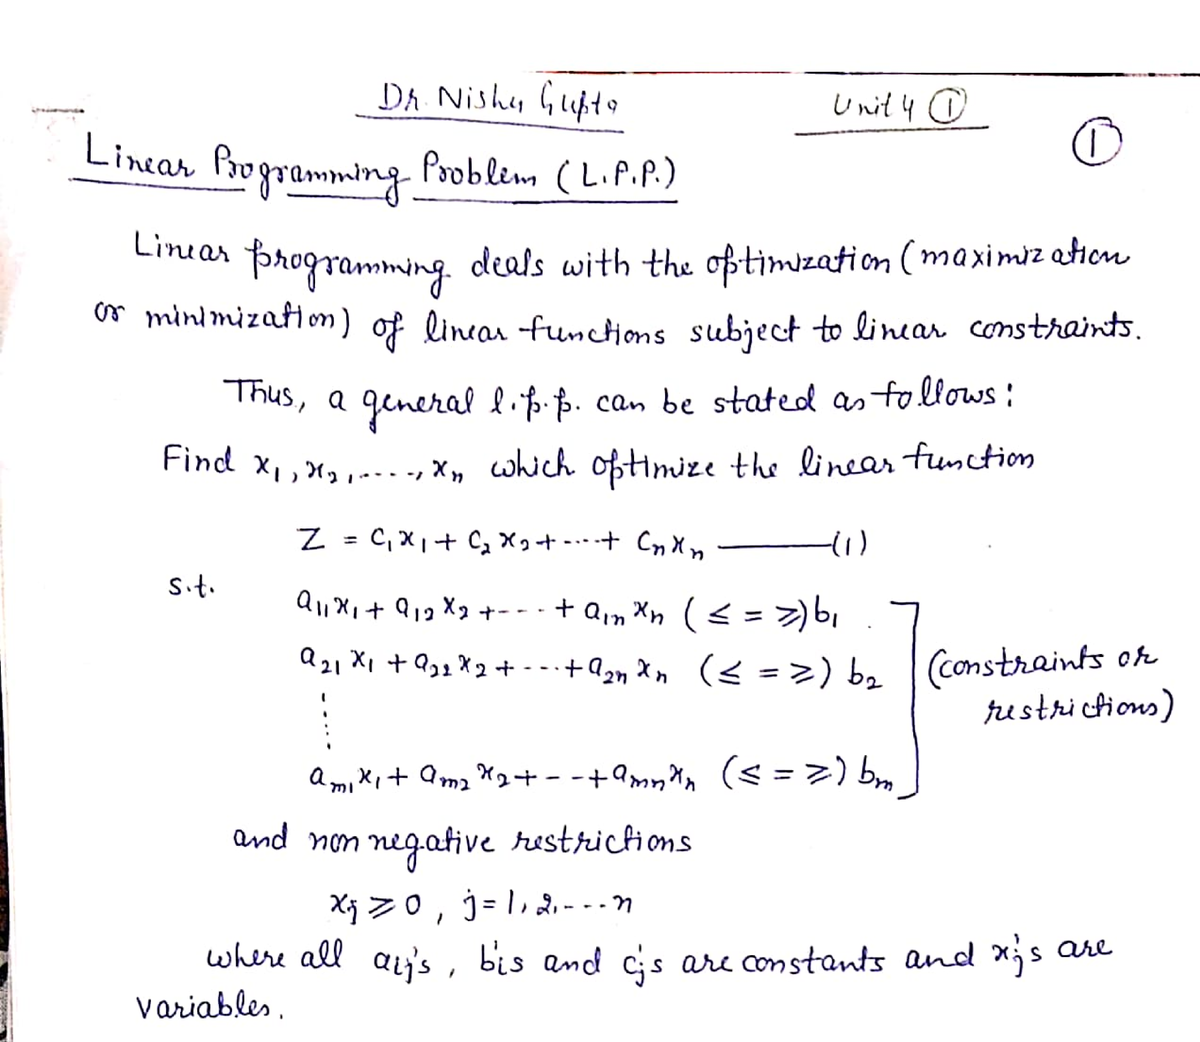 Dr. Nisha Gupta
Unit 4 ①
①
Linear Programming Problem (L.P.P.)
Linear programming deals with the optimization (maximization
or minimization) of linear functions subject to linear constraints.
Thus, a general l.p.p. can be stated as follows:
Find x₁, x₂, ----, xₙ which optimize the linear function
Z = c₁x₁ + c₂x₂ + ---- + cₙxₙ ———(1)
s.t.
a₁₁x₁ + a₁₂x₂ + --- + a₁ₙxₙ (≤ = ≥) b₁
a₂₁x₁ + a₂₂x₂ + --- + a₂ₙxₙ (≤ = ≥) b₂
(constraints or
restrictions)
aₘ₁x₁ + aₘ₂x₂ + -- + aₘₙxₙ (≤ = ≥) bₘ
and non negative restrictions
xⱼ ≥ 0, j = 1, 2, --- n
where all aᵢⱼ's, bᵢ's and cⱼ's are constants and xⱼ's are
variables.